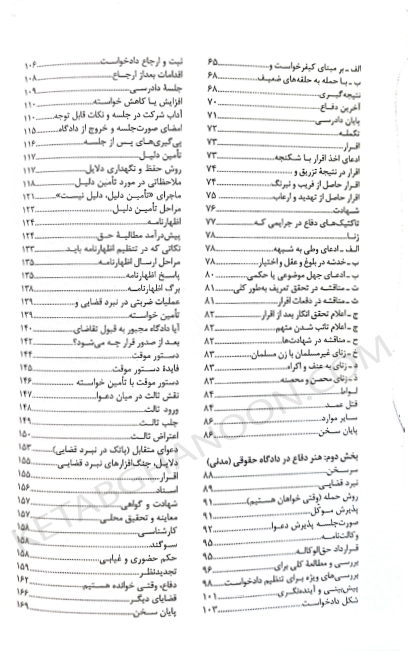 الف ـ بر مبنای کیفرخواست و ........ ۶۵
ب ـ با حمله به حلقه‌های ضعیف ........ ۶۸
نتیجه‌گیری ........ ۶۸
آخرین دفاع ........ ۷۰
پایان دادرسی ........ ۷۱
تکمله ........ ۷۲
اقرار ........ ۷۳
ادعای اخذ اقرار با شکنجه ........ ۷۳
اقرار در نتیجهٔ تزریق و ........ ۷۴
اقرار حاصل از فریب و نیرنگ ........ ۷۴
اقرار حاصل از تهدید و ارعاب ........ ۷۵
شهادت ........ ۷۶
تاکتیک‌های دفاع در جرایمی که ........ ۷۷
زنا ........ ۷۸
الف ـ ادعای وطی به شبهه ........ ۷۸
ب ـ خدشه در بلوغ و عقل و اختیار ........ ۷۸
پ ـ ادعای جهل موضوعی یا حکمی ........ ۸۰
ت ـ مناقشه در تحقق تعریف به‌طور کلی ........ ۸۱
ث ـ مناقشه در دفعات اقرار ........ ۸۱
ج ـ اعلام تحقق انکار بعد از اقرار ........ ۸۲
چ ـ اعلام تائب شدن متهم ........ ۸۲
ح ـ مناقشه در شهادت‌ها ........ ۸۲
خ ـ زنای غیرمسلمان با زن مسلمان ........ ۸۳
د ـ زنای به عنف و اکراه ........ ۸۳
ذ ـ زنای محصن و محصنه ........ ۸۳
لواط ........ ۸۴
قتل عمد ........ ۸۴
سایر موارد ........ ۸۶
پایان سخن ........ ۸۶
بخش دوم: هنر دفاع در دادگاه حقوقی (مدنی)
سرسخن ........ ۸۸
نبرد قضایی ........ ۸۹
روش حمله (وقتی خواهان هستیم) ........ ۹۱
پذیرش موکّل ........ ۹۱
صورت‌جلسه پذیرش دعوا ........ ۹۲
وکالت‌نامه ........ ۹۵
قرارداد حق‌الوکاله ........ ۹۵
بررسی و مطالعهٔ کلی برای ........ ۹۶
بررسی‌های ویژه برای تنظیم دادخواست ........ ۹۸
پیش‌بینی و آینده‌نگری ........ ۱۰۱
شکل دادخواست ........ ۱۰۳
ثبت و ارجاع دادخواست ........ ۱۰۶
اقدامات بعداز ارجاع ........ ۱۰۸
جلسهٔ دادرسی ........ ۱۰۹
افزایش یا کاهش خواسته ........ ۱۱۰
آداب شرکت در جلسه و نکات قابل توجه ........ ۱۱۰
امضای صورت‌جلسه و خروج از دادگاه ........ ۱۱۵
پی‌گیری‌های پس از جلسه ........ ۱۱۶
تأمین دلیل ........ ۱۱۷
روش حفظ و نگهداری دلایل ........ ۱۱۷
ملاحظاتی در مورد تأمین دلیل ........ ۱۱۸
ماجرای «تأمین دلیل، دلیل نیست» ........ ۱۲۱
مراحل تأمین دلیل ........ ۱۲۲
اظهارنامه ........ ۱۲۴
پیش‌درآمد مطالبهٔ حق ........ ۱۲۴
نکاتی که در تنظیم اظهارنامه باید ........ ۱۳۳
مراحل ارسال اظهارنامه ........ ۱۳۵
پاسخ اظهارنامه ........ ۱۳۵
برگ اظهارنامه ........ ۱۳۸
عملیات ضربتی در نبرد قضایی و ........ ۱۳۹
تأمین خواسته ........ ۱۳۹
آیا دادگاه مجبور به قبول تقاضای ........ ۱۴۰
بعد از صدور قرار چه می‌شود؟ ........ ۱۴۲
دستور موقت ........ ۱۴۴
فایدهٔ دستور موقت ........ ۱۴۵
دستور موقت با تأمین خواسته ........ ۱۴۶
نقش ثالث در میان دعوا ........ ۱۴۷
ورود ثالث ........ ۱۴۸
جلب ثالث ........ ۱۴۹
اعتراض ثالث ........ ۱۵۰
دعوای متقابل (پاتک در نبرد قضایی) ........ ۱۵۳
دلایل، جنگ‌افزارهای نبرد قضایی ........ ۱۵۵
اقرار ........ ۱۵۵
اسناد ........ ۱۵۶
شهادت و گواهی ........ ۱۵۷
معاینه و تحقیق محلی ........ ۱۵۷
کارشناسی ........ ۱۵۸
سوگند ........ ۱۵۸
حکم حضوری و غیابی ........ ۱۵۸
تجدیدنظر ........ ۱۵۹
دفاع، وقتی خوانده هستیم ........ ۱۶۲
قضایای دیگر ........ ۱۶۶
پایان سخن ........ ۱۶۹
KETABGHANOON.COM